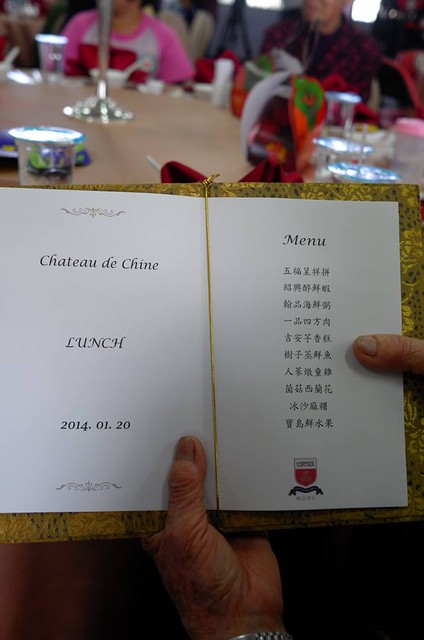 Chateau de Chine
LUNCH
2014. 01. 20
Menu
五福呈祥拼
紹興醉鮮蝦
翰品海鮮粥
一品四方肉
吉安芋香糕
樹子蒸鮮魚
人蔘燉童雞
菌菇西蘭花
冰沙麻糬
寶島鮮水果